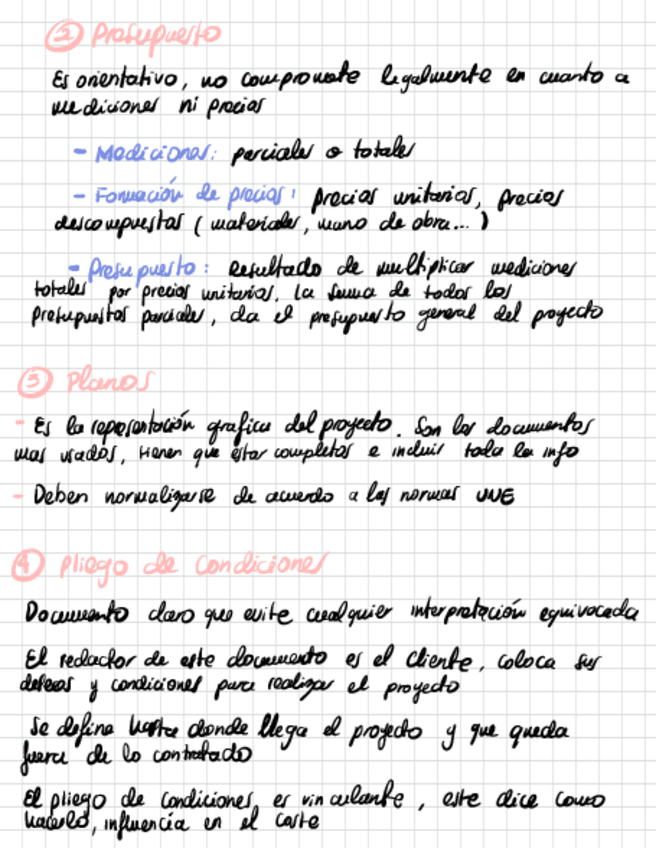 ② Presupuesto
Es orientativo, no compromete legalmente en cuanto a
mediciones ni precios
- Mediciones: parciales o totales
- Formación de precios: precios unitarios, precios
descompuestos (materiales, mano de obra...)
- Presupuesto: Resultado de multiplicar mediciones
totales por precios unitarios. La suma de todos los
presupuestos parciales, da el presupuesto general del proyecto
③ Planos
- Es la representación grafica del proyecto. Son los documentos
mas usados, tienen que estar completos e incluir toda la info
- Deben normalizarse de acuerdo a las normas UNE
④ Pliego de condiciones
Documento claro que evite cualquier interpretación equivocada
El redactor de este documento es el cliente, coloca sus
deseos y condiciones para realizar el proyecto
Se define hasta donde llega el proyecto y que queda
fuera de lo contratado
El pliego de condiciones es vinculante, este dice como
hacerlo, influencia en el coste